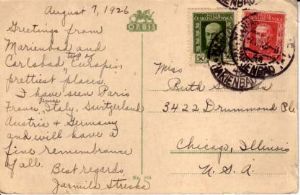 August 7, 1926
ORBIS
Greetings from
Marienbad and
Carlsbad Europe's
prettiest places.
I have seen Paris
France, Italy, Switzerland
Austria & Germany
and will have a
fine remembrance
of all.
Best regards,
Jarmila
Miss
Ruth
3422 Drummond
Chicago, Illinois
U. S. A.